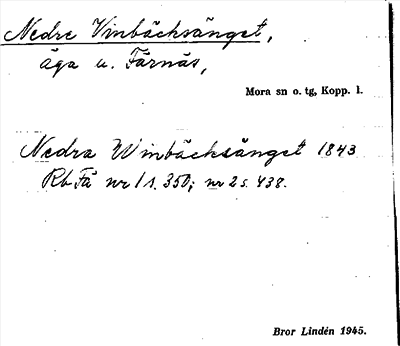 Nedre Vinbäcksänget,
äga u. Färnäs,
Mora sn o. tg, Kopp. l.
Nedra Winbäcksänget 1843
Rb Fä nr 1 s. 350; nr 2 s. 438.
Bror Lindén 1945.